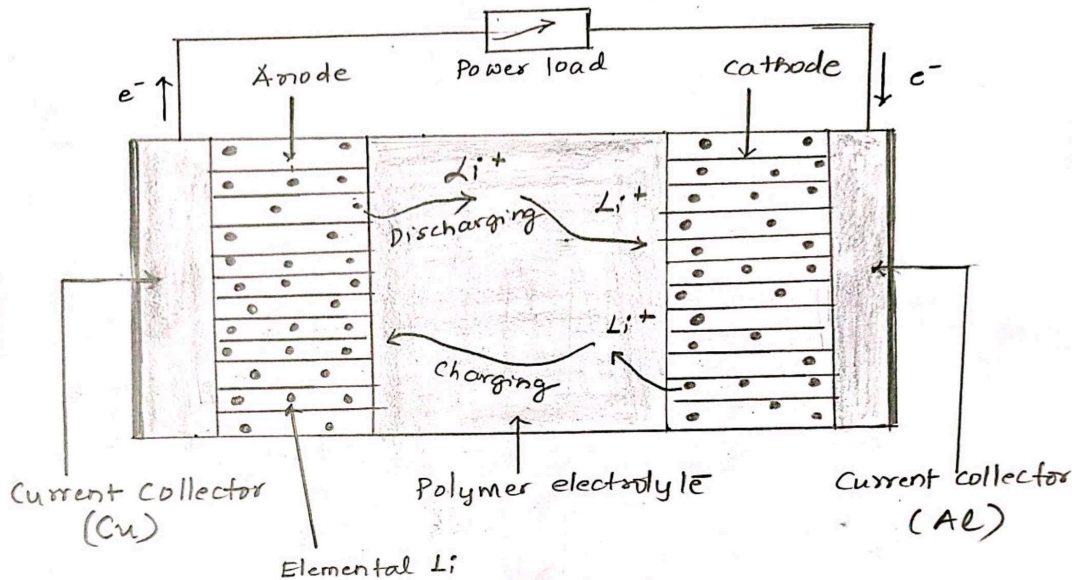 Power load
e-
Anode
cathode
e-
Li+
Discharging
Li+
Li+
Charging
Current Collector
(Cu)
Polymer electrolyte
Current collector
(Al)
Elemental Li